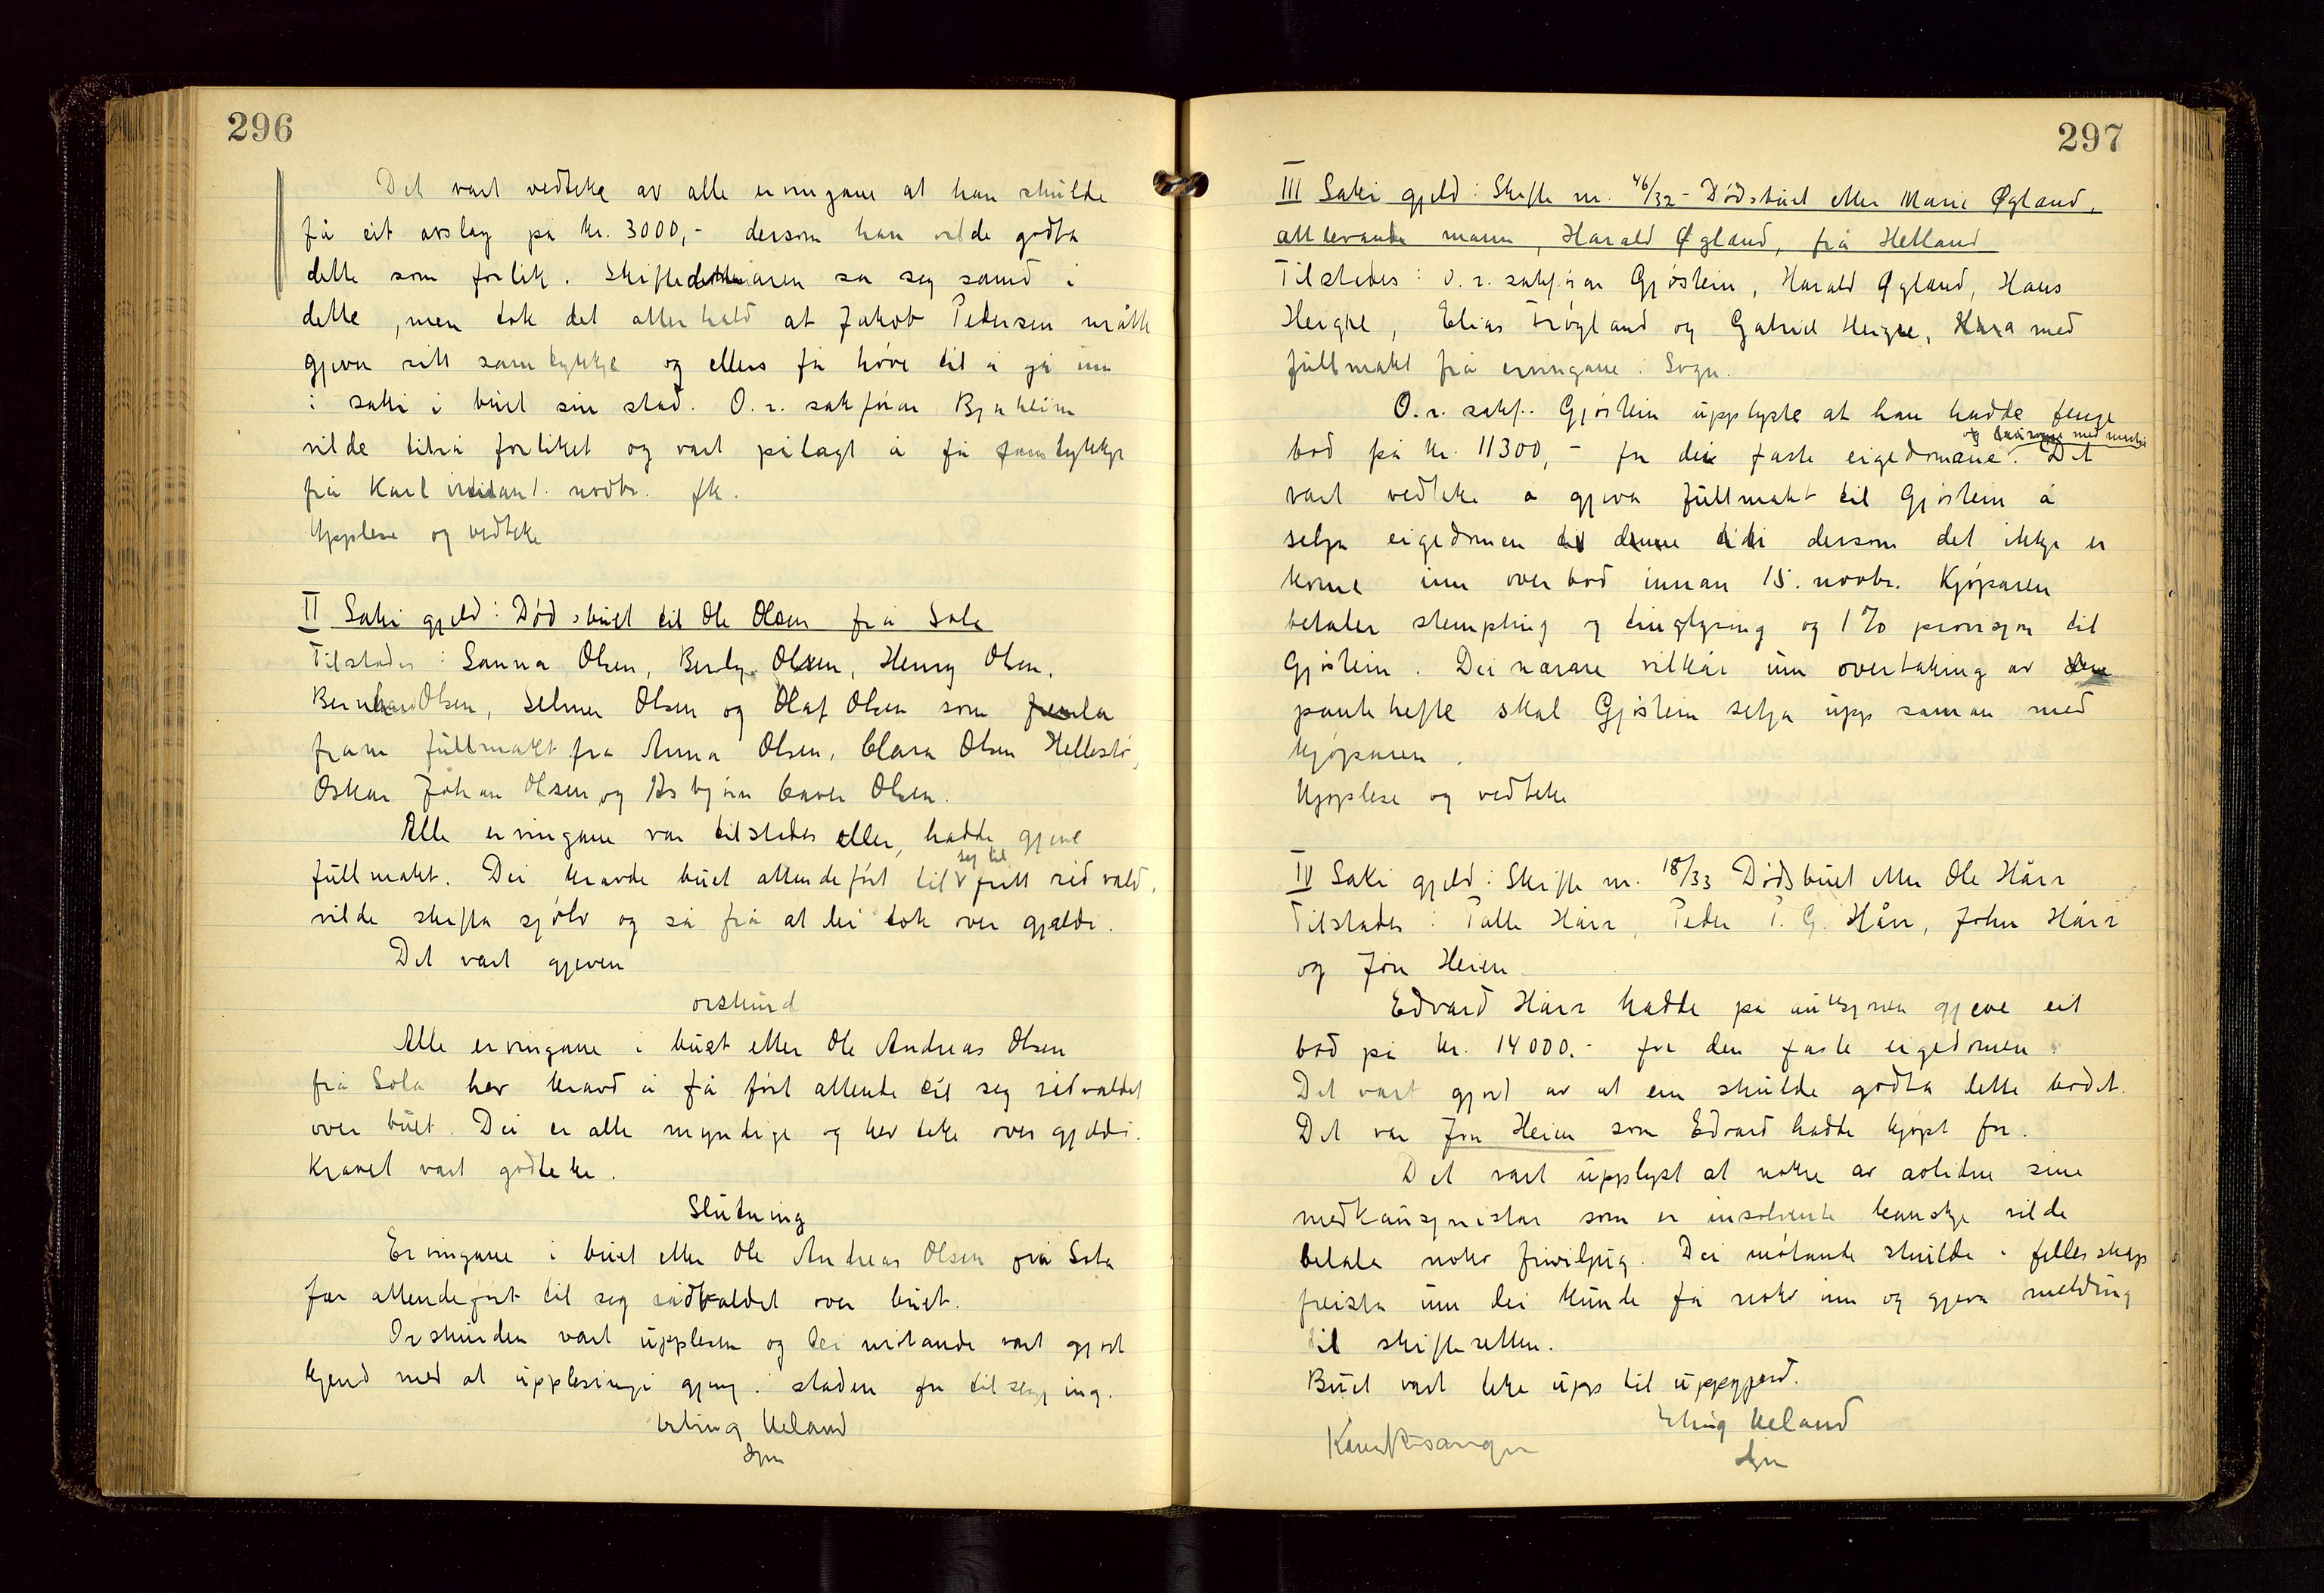 296
Det vart vedteke av alle ervingane at han skulde
få eit avslag på kr. 3000,- dersom han vilde godta
dette som forlik. Skiftedommaren sa seg samd i
dette, men tok det atterhald at Jakob Pedersen måtte
gjeva sitt samtykkje og ellers få høve til å gå inn
i saki i buet sin stad. O.r. sakførar Bjaheim
vilde tilrå forliket og vart pålagt å få samtykkje
frå Karl innan 1. novbr. fk.
Upplese og vedteke
II Saki gjeld: Dødsbuet til Ole Olsen frå Sola
Tilstades: Sanna Olsen, Berly Olsen, Henry Olsen,
Bernhard Olsen, Selmer Olsen og Olaf Olsen som
fram fullmakt fra Anna Olsen, Clara Olsen Hellestø,
Oskar Johan Olsen og Asbjørn Olsen.
Alle ervingane var tilstades eller hadde gjeve
fullmakt. Dei kravde buet attendeført til seg til fritt rådvald,
vilde skifta sjølv og sa frå at dei tok over gjeldi.
Det vart gjeven
orskurd
Alle ervingane i buet etter Ole Andreas Olsen
frå Sola hev kravd å få ført attende til seg rådvaldet
over buet. Dei er alle myndige og hev teke over gjeldi.
Kravet vart godteke.
Slutning
Ervingane i buet etter Ole Andreas Olsen frå Sola
fær attendeført til seg rådvaldet over buet.
Orskurden vart upplesen og dei møtande vart gjort
kjend med at upplesingi gjeng i staden for tilsegjing.
Erling Ueland
297
III Saki gjeld: Skifte nr. 46/32 - Dødsbuet etter Marie Øgland,
attlevande mann, Harald Øgland, frå Hetland
Tilstades: O.r. sakførar Gjøstein, Harald Øgland, Hans
Heigre, Elias Frøyland og Gabriel Heigre, med
fullmakt frå ervingane i Sogn.
O.r. sakf. Gjøstein upplyste at han hadde fenge
bod på kr. 11300,- for dei faste eigedomane. Det
vart vedteke å gjeva fullmakt til Gjøstein å
selja eigedomen dersom det ikkje er
kome inn overbod innan 15. novbr. Kjøparen
betaler stempling og tinglysing og 1% provisjon til
Gjøstein. Dei nærare vilkår um overtaking av
panthefte skal Gjøstein setja upp saman med
kjøparen.
Upplese og vedteke
IV Saki gjeld: Skifte nr. 18/33 Dødsbuet etter Ole Hårr
Tilstades: Palle Hårr, Peder P. G. Hårr, John Hårr
og Jon Heien
Edvard Hårr hadde på auksjonen gjeve eit
bod på kr. 14000.- for den faste eigedomen.
Det vart gjort av at ein skulde godta dette bodet.
Det var Jon Heien som Edvard hadde kjøpt for.
Det vart upplyst at nokre av avlidne sine
medkausjonistar som er insolvente kanskje vilde
betala noko friviljug. Dei møtande skulde i fellesskap
freista um dei kunde få noko inn og gjeva melding
til skifteretten.
Buet vart teke upp til uppgjerd.
Erling Ueland